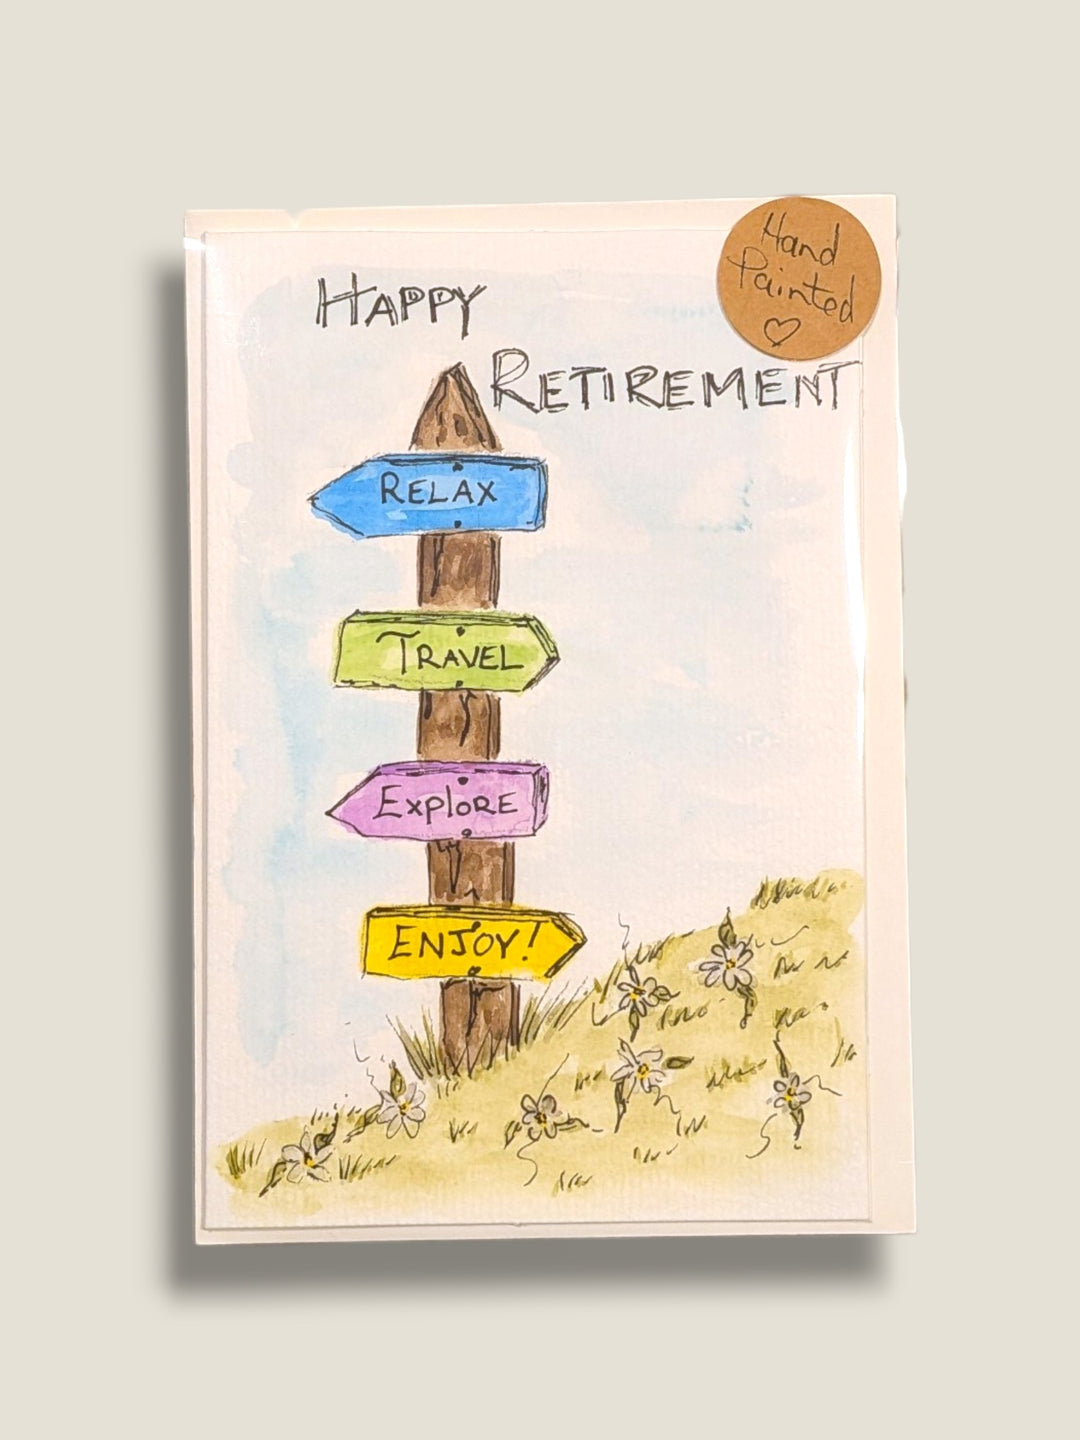 Hand
Painted
HAPPY
RETIREMENT
RELAX
TRAVEL
ExplORE
ENJOY!